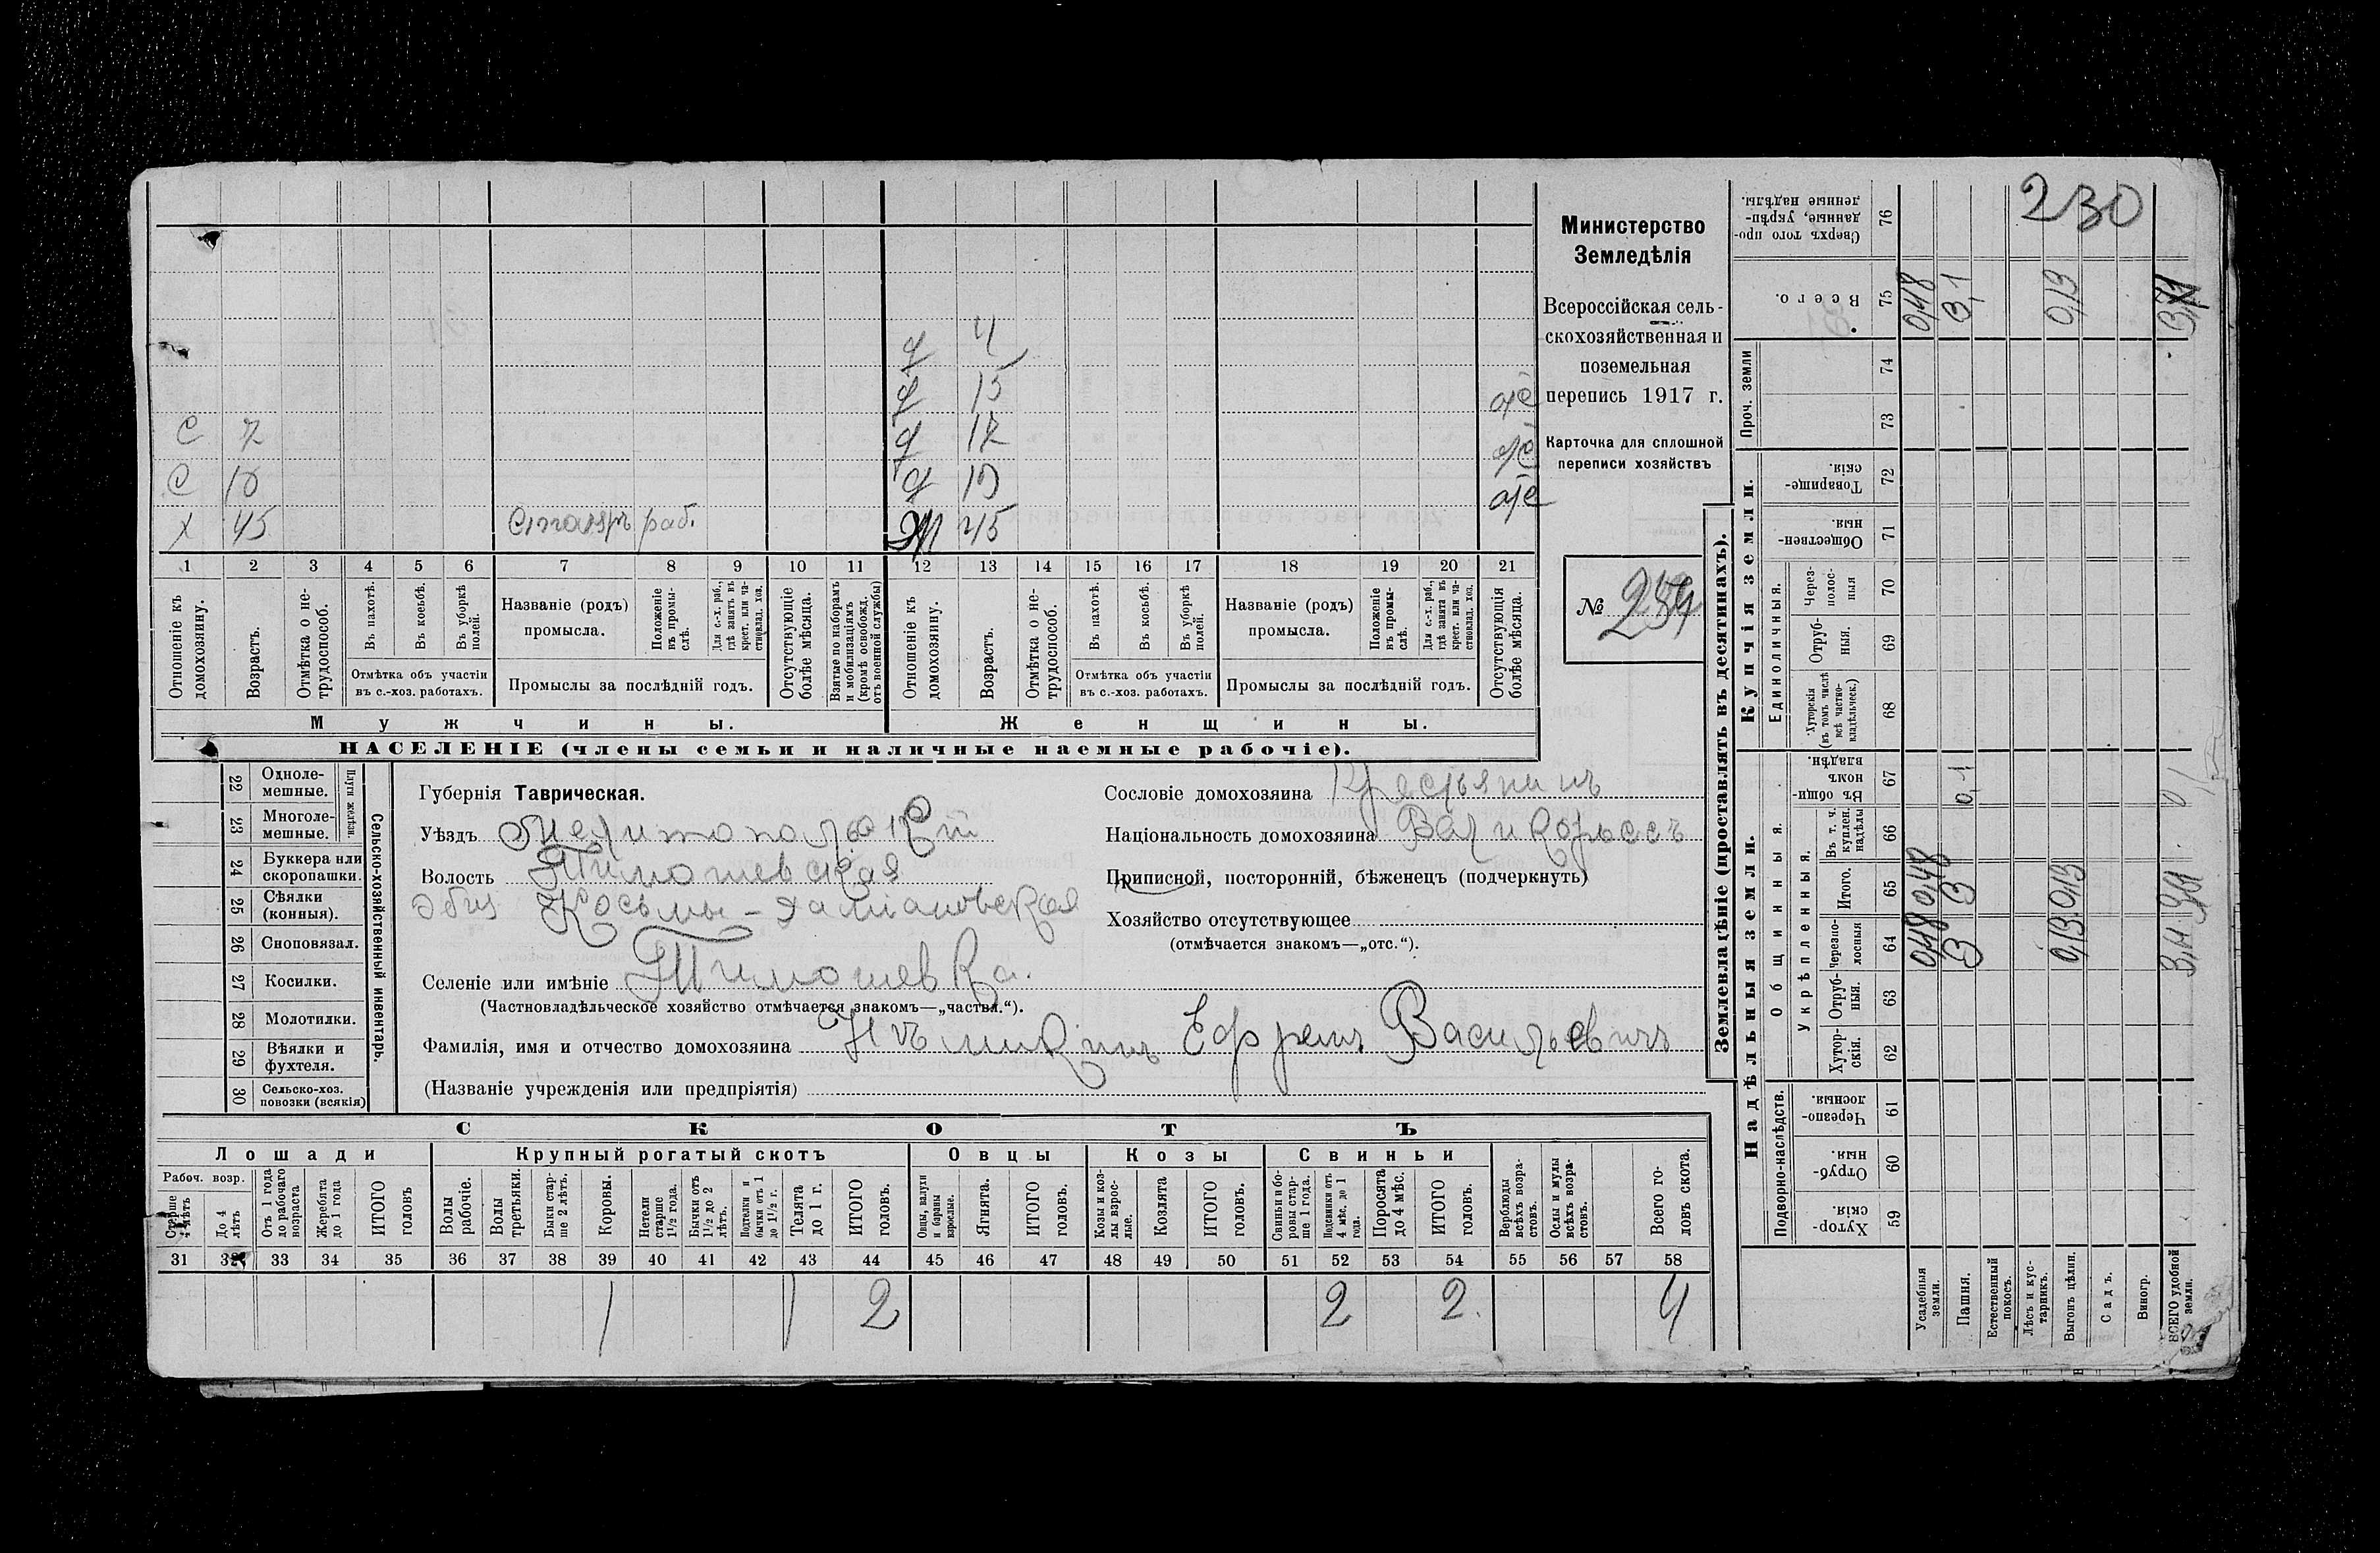 230
Министерство
Земледѣлія
Всероссійская сель-
скохозяйственная и
поземельная
перепись 1917 г.
Карточка для сплошной
переписи хозяйствъ
№ 234
ч 4
д 15 оте
С 7 д 12 оте
С 10 д 19 оте
Х 45 раб. Ж 45
1 2 3 4 5 6 7 8 9 10 11 12 13 14 15 16 17 18 19 20 21
Отношеніе къ домохозяину.
Возрастъ.
Отмѣтка о не-трудоспособ.
Въ пахотѣ.
Въ косьбѣ.
Въ уборкѣ полей.
Отмѣтка объ участіи
въ с.-хоз. работахъ.
Названіе (родъ)
промысла.
Положеніе въ промы-слѣ.
Для с.-х. раб., гдѣ занятъ въ крест. или ча-стновлад. хоз.
Промыслы за послѣдній годъ.
Отсутствующіе болѣе мѣсяца.
Взятые по наборамъ и мобилизаціямъ (кромѣ освобожд. отъ военной службы)
Отношеніе къ домохозяину.
Возрастъ.
Отмѣтка о не-трудоспособ.
Въ пахотѣ.
Въ косьбѣ.
Въ уборкѣ полей.
Отмѣтка объ участіи
въ с.-хоз. работахъ.
Названіе (родъ)
промысла.
Положеніе въ промы-слѣ.
Для с.-х. раб., гдѣ занята въ крест. или ча-стновлад. хоз.
Промыслы за послѣдній годъ.
Отсутствующія болѣе мѣсяца.
Мужчины.
Женщины.
НАСЕЛЕНІЕ (члены семьи и наличные наемные рабочіе).
22 Одноле-мешные.
23 Многоле-мешные.
Плуги желѣзн.
24 Буккера или скоропашки.
25 Сѣялки (конныя).
26 Сноповязал.
27 Косилки.
28 Молотилки.
29 Вѣялки и фухтеля.
30 Сельско-хоз. повозки (всякія)
Сельско-хозяйственный инвентарь.
Губернія Таврическая.
Уѣздъ Мелитопольскій
Волость Тимошевская
общ Косьмы-Даміановская
Селеніе или имѣніе Тимошевка.
(Частновладѣльческое хозяйство отмѣчается знакомъ—„частвл.“).
Сословіе домохозяина Крестьянинъ
Національность домохозяина Великороссъ
Приписной, посторонній, бѣженецъ (подчеркнуть)
Хозяйство отсутствующее
(отмѣчается знакомъ—„отс.“).
Фамилія, имя и отчество домохозяина Нѣмикинъ Ефремъ Васильевичъ
(Названіе учрежденія или предпріятія)
СКОТЪ
Лошади
Крупный рогатый скотъ
Овцы
Козы
Свиньи
Рабоч. возр.
Старше 4 лѣтъ
До 4 лѣтъ
Отъ 1 года до рабочаго возраста
Жеребята до 1 года
ИТОГО головъ
Волы рабочіе.
Волы третьяки.
Быки стар-ше 2 лѣтъ.
Коровы.
Нетели старше 1½ года.
Бычки отъ 1½ до 2 лѣтъ.
Подтелки и бычки отъ 1 до 1½ г.
Телята до 1 г.
ИТОГО головъ.
Овцы, валухи и бараны взрослые.
Ягнята.
ИТОГО головъ.
Козы и коз-лы взрос-лые.
Козлята
ИТОГО головъ.
Свиньи и бо-ровы стар-ше 1 года.
Подсвинки отъ 4 мѣс. до 1 года.
Поросята до 4 мѣс.
ИТОГО головъ.
Верблюды всѣхъ возра-стовъ.
Ослы и мулы всѣхъ возра-стовъ.
Всего го-ловъ скота.
31 32 33 34 35 36 37 38 39 40 41 42 43 44 45 46 47 48 49 50 51 52 53 54 55 56 57 58
1 1 2 2 2. 4
Землевладѣніе (проставлять въ десятинахъ).
Надѣльныя земли.
Купчія земли.
Проч. земли
Подворно-наслѣдств.
Общинныя.
Укрѣпленныя.
Единоличныя.
59 Хутор-скія.
60 Отруб-ныя.
61 Черезпо-лосныя.
62 Хутор-скія.
63 Отруб-ныя.
64 Черезпо-лосныя
65 Итого.
66 Въ т. ч. куплен. надѣлы
67 Въ общин-номъ владѣн.
68 Хуторскія (въ томъ числѣ всѣ частно-владѣльческ.)
69 Отруб-ныя.
70 Через-полос-ныя
71 Обществен-ныя.
72 Товарище-скія.
73
74
75 Всего.
76 Сверхъ того про-данные, укрѣп-ленные надѣлы.
Усадебныя земли. 0,48 0,48 0,48
Пашня. 3 3 0,1 3,1
Естественный покосъ.
Лѣсъ и кус-тарникъ.
Выгонъ цѣлин. 0,13 0,13 0,13
Садъ.
Виногр.
ВСЕГО удобной земли.